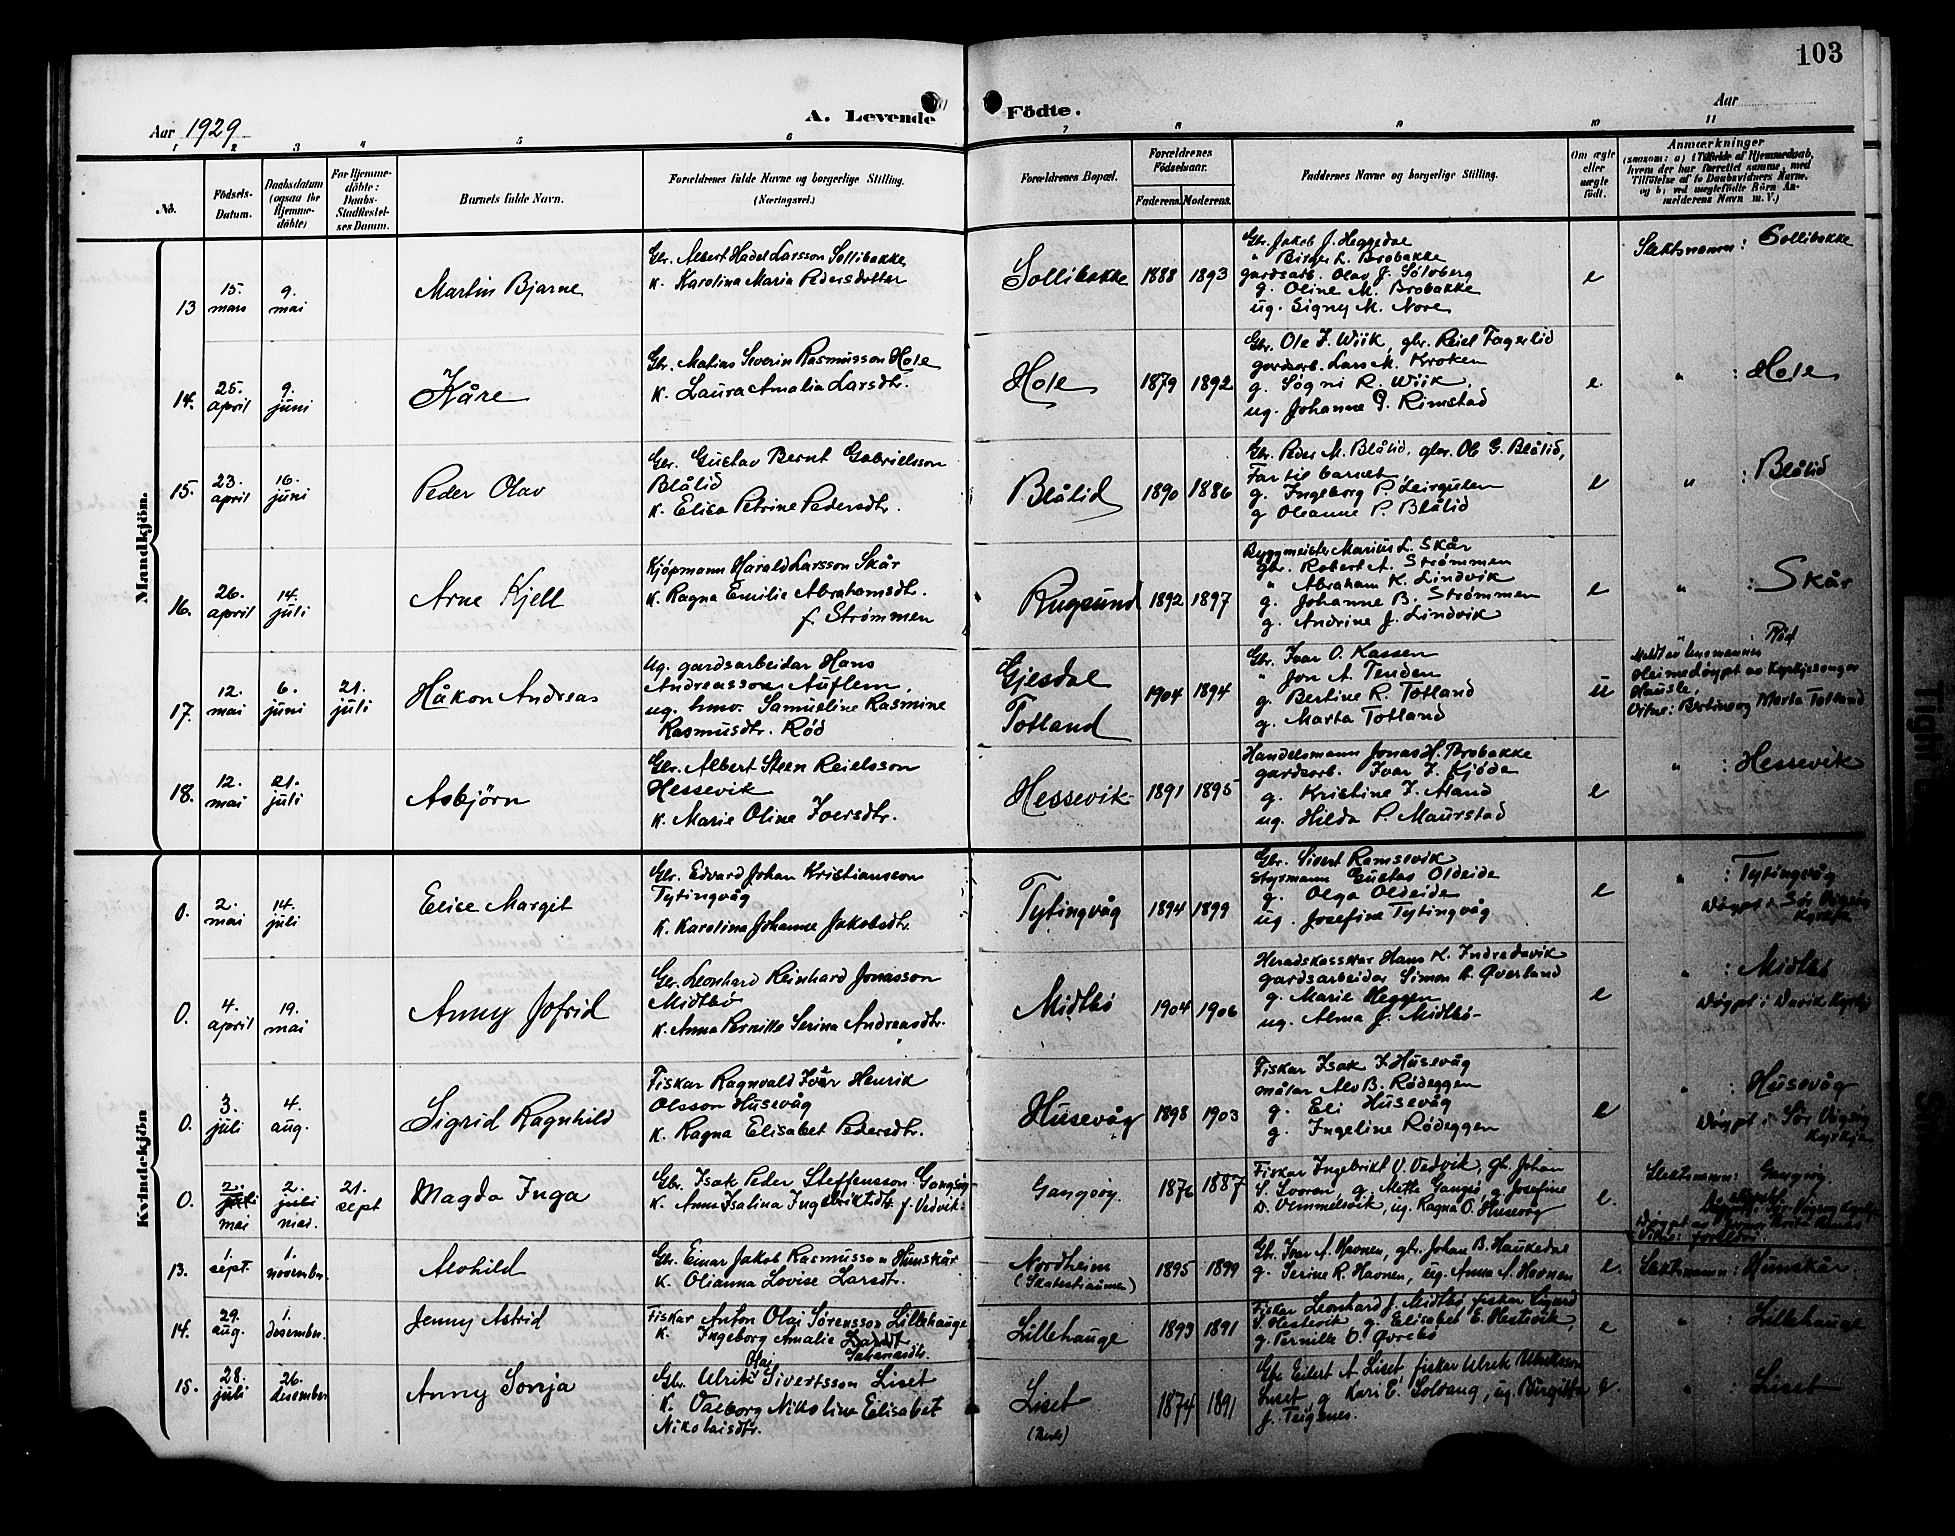 103
Aar 1929
A. Levende Födte.
Aar
1 2 3 4 5 6 7 8 9 10 11
No.
Födsels-
Datum.
Daabsdatum
(ogsaa for
Hjemme-
döbte)
For Hjemme-
döbte:
Daabs-
Stadfæstel-
ses Datum.
Barnets fulde Navn.
Forældrenes fulde Navne og borgerlige Stilling.
(Næringsvei.)
Forældrenes Bopæl.
Forældrenes
Födselsaar.
Faderens. Moderens.
Faddernes Navne og borgerlige Stilling.
Om ægte
eller
uægte
født.
Anmærkninger
(saasom: a) i Tilfælde af Hjemmedaab,
hvem der har forrettet samme, med
Tilföielse af to Daabsvidners Navne,
og b) ved uægtefödte Börn An-
melderens Navn m. V.)
Mandkjön.
13
15.
mars
9.
mai
Martin Bjarne
Gbr. Albert Hadel Larsson Sollibakke
K. Karolina Maria Pedersdotter
Sollibakke
1888 1893
Gbr. Jakob J. Heggedal
" Birger L. Brobakke
gardsarb. Olav J. Sølvberg
g. Oline M. Brobakke
ug. Signy M. Nore
e
Slektsnamn: Sollibakke
14.
25.
april
9.
juni
Kåre
Gbr. Matias Severin Rasmusson Hole
K. Laura Amalia Larsdtr.
Hole
1879 1892
Gbr. Ole J. Wiik, gbr. Reiel Fagerlid
gardsarb. Lars M. Kroken
g. Søgni R. Wiik,
ug. Johanne J. Rimstad
e
" : Hole
15.
23.
april
16.
juni
Peder Olav
Gbr. Gustav Bernt Gabrielsson
Blålid
K. Elisa Petrine Pedersdtr.
Blålid
1890 1886
Gbr. Peder M. Blålid, gbr. Ole G. Blålid,
Far til barnet
g. Ingeborg P. Leirgulen
g Oleanne P. Blålid
e
" : Blålid
16.
26.
april
14.
juli
Arne Kjell
Kjøpmann Harald Larsson Skår
K. Ragna Emilie Abrahamsdt.
f. Strømmen
Rugsund
1892 1897
Byggmeister Marius L. Skår
gbr. Robert A. Strømmen
" Abraham K. Lindvik
g. Johanne B. Strømmen
g. Andrine J. Lindvik
e
" : Skår
17.
12.
mai
6.
juni
21.
juli
Håkon Andreas
Ug. gardsarbeidar Hans
Andreasson Auflem,
ug. hmv. Samueline Rasmine
Rasmusdtr. Rød
Gjesdal
Totland
1904 1894
Gbr. Ivar O. Kassen
" Jon A. Tenden
g. Bertine R. Totland
g. Marta Totland
u
Rød
Meldt av lensmannen
Heimedøypt av kyrkjesongar
Hausle,
Vitne: Bertine og Marta Totland
18.
12.
mai
21.
juli
Asbjörn
Gbr. Albert Steen Reielsson
Hessevik
K. Marie Oline Iversdtr.
Hessevik
1891 1895
Handelsmann Jonas H. Brobakke
gardsarb. Ivar I. Kjøde
g. Kristine I. Aland
ug. Hilda P. Maurstad
e
" : Hessevik
Kvindekjön
0.
2.
mai
14.
juli
Elise Margit
Gbr. Edvard Johan Kristiansson
Tytingvåg
K. Karolina Johanne Jakobsdtr.
Tytingvåg
1894 1899
Gbr. Sivert Ramsevik
Styrmann Gustav Oldeide
g. Olga Oldeide
ug. Josefine Tytingvåg
e
" : Tytingvåg
Døypt i Sør Vågsøy
Kyrkje
0.
4.
april
19.
mai
Anny Jofrid
Gbr. Leonhard Reinhard Jonasson
Midtbø
K. Anna Pernille Serina Andreasdtr.
Midtbø
1904 1906
Heradskasserar Hans K. Indredavik
gardsarbeidar Simon A. Øverland
g. Marie Heggen
ug. Alma J. Midtbø
e
" : Midtbø
Døypt i Davik Kyrkje
0.
3.
juli
4.
aug.
Sigrid Ragnhild
Fiskar Ragnvald Ivar Henrik
Olsson Husevåg
K. Ragna Elisabet Pedersdtr.
Husevåg
1898 1903
Fiskar Isak I. Husevåg
målar Alv B. Rødeggen
g. Eli Husevåg
g. Ingeline Rødeggen
e
" : Husevåg
Døypt i Sør Vågsøy
Kyrkje
0.
2.
mai
2.
juli
21.
sept
Magda Inga
Gbr. Isak Peder Steffensson Gangsøy
K. Anna Isalina Ingebriktsdtr. f. Vedvik
Gangsøy.
1876 1887
Fiskar Ingebrikt V. Vedvik, gb. Johan
g. Mette Gangsø, g. Josefine
D. Vemmelsvik, ug. Ragna O. Husevåg
e.
Slektsnamn: Gangsøy.
13.
1.
sept.
1.
november.
Alvhild
Gbr. Einar Jakob Rasmusson Hunskår
K. Olianna Lovise Larsdtr.
Nordheim
(Skatestraumen)
1895 1899
Gbr. Ivar A. Havnen, gbr. Johan B. Haukedal
g. Serine R. Havnen, ug. Anna A. Havnen
e.
Slektsnamn: Hunskår.
14.
29.
aug.
1.
desember.
Jenny Astrid
Fiskar Anton Olai Sørensson Lillehauge
K. Ingeborg Amalie
Lillehauge
1899 1891
Fiskar Leonhard J. Midtbø, fiskar Sigurd
S. Hestevik, g. Elisabet E. Hestevik,
g. Pernille D. Øvrebø
e
" : Lillehauge
15.
28.
juli
26.
desember
Anny Sonja
Gbr. Ulrik Olai Sivertsson Liset
K. Valborg Nikoline Elisabet
Nikolaisdtr.
Liset
1874 1891
Gbr. Eilert A. Liset, fiskar Ulrik Ulriksson
Liset, g Kari E. Solvang, ug. Birgitte
J. Teigenes.
e.
" : Liset
Tight